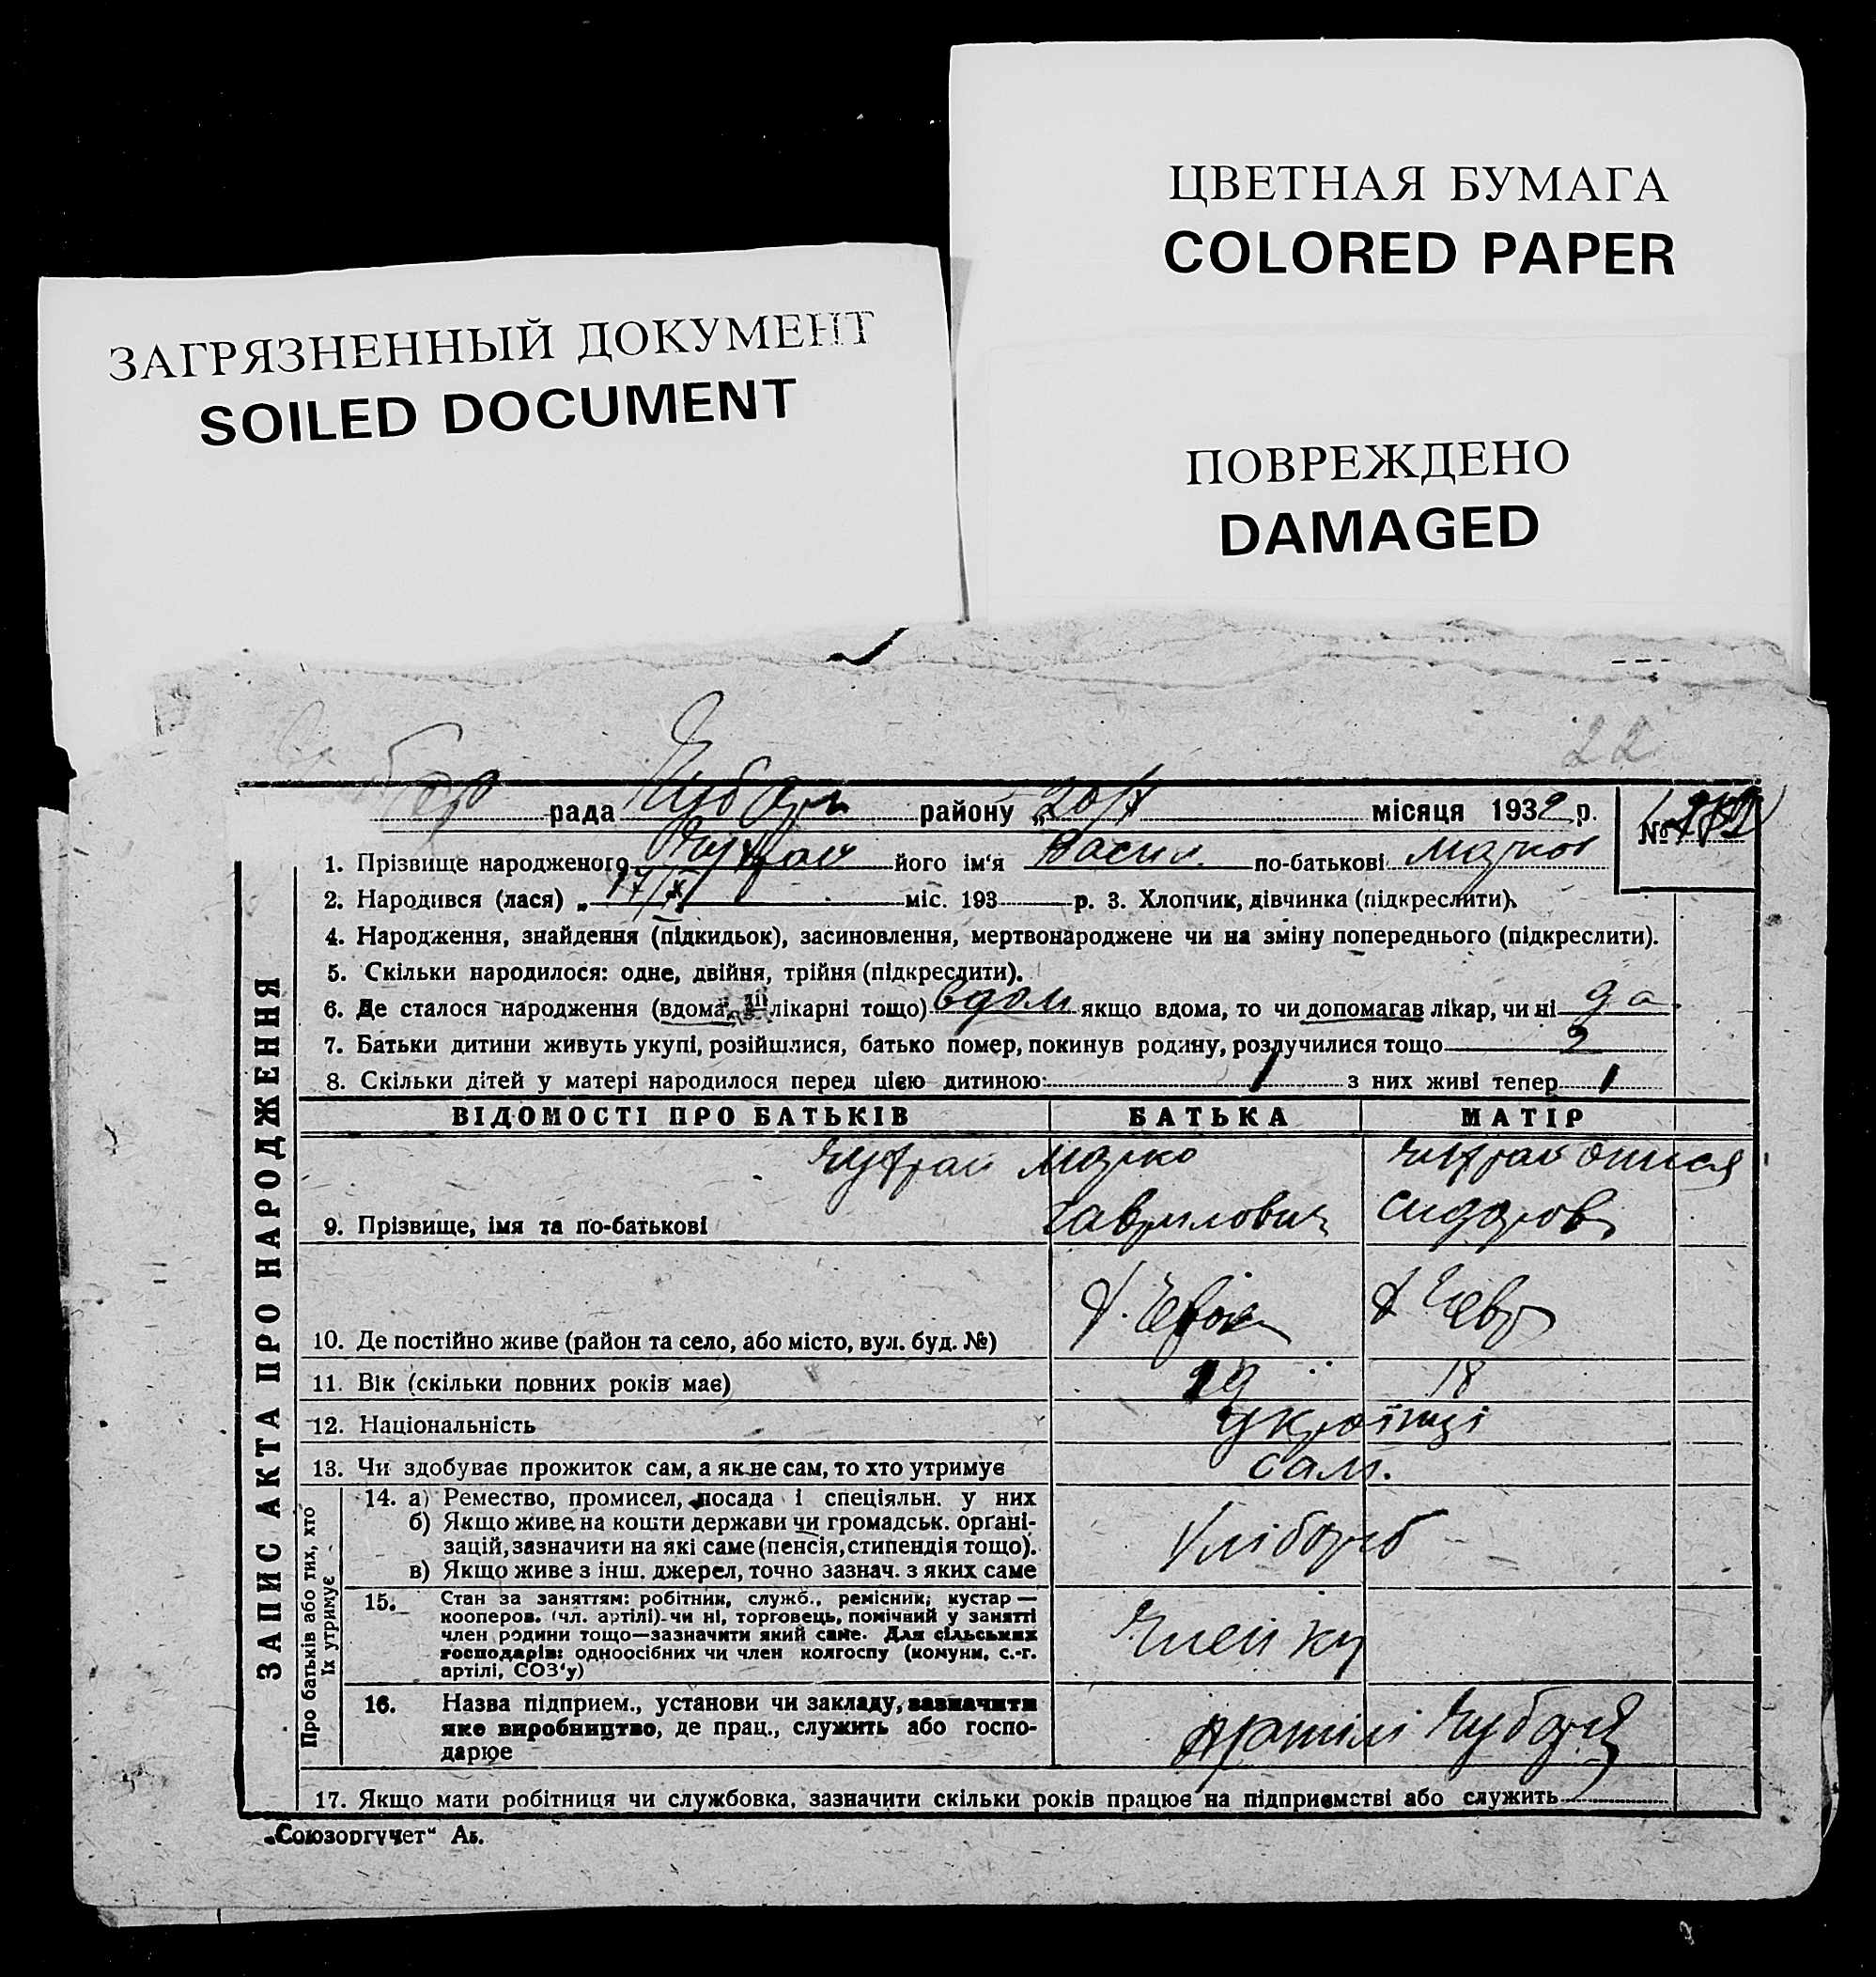 ЦВЕТНАЯ БУМАГА
COLORED PAPER
ЗАГРЯЗНЕННЫЙ ДОКУМЕНТ
SOILED DOCUMENT
ПОВРЕЖДЕНО
DAMAGED
22
рада Чубар району „20/X місяця 1932 р. №
1. Прізвище народженого його ім‘я Васил. по-батькові Марков
2. Народився (лася) „17/X міс. 193 р. 3. Хлопчик, дівчинка (підкреслити).
4. Народження, знайдення (підкидьок), засиновлення, мертвонароджене чи на зміну попереднього (підкреслити).
5. Скільки народилося: одне, двійня, трійня (підкреслити).
6. Де сталося народження (вдома, в лікарні тощо) вдом якщо вдома, то чи допомагав лікар, чи ні да
7. Батьки дитини живуть укупі, розійшлися, батько помер, покинув родину, розлучилися тощо
8. Скільки дітей у матері народилося перед цією дитиною: 1 з них живі тепер 1
ВІДОМОСТІ ПРО БАТЬКІВ БАТЬКА МАТІР
Чуфрай Марко Чуфрай Онися
9. Прізвище, імя та по-батькові Гаврилович Сидоров
10. Де постійно живе (район та село, або місто, вул. буд. №)
11. Вік (скільки повних років має) 29 18
12. Національність Українці
13. Чи здобуває прожиток сам, а як не сам, то хто утримує сам.
14. а) Ремество, промисел, посада і спеціяльн. у них
б) Якщо живе на кошти держави чи громадськ. органі-
зацій, зазначити на які саме (пенсія, стипендія тощо). Хлібороб
в) Якщо живе з інш. джерел, точно зазнач. з яких саме
15. Стан за заняттям: робітник, служб., ремісник, кустар —
кооперов. (чл. артілі) чи ні, торговець, помічний у занятті
член родини тощо—зазначити який саме. Для сільських
господарів: одноосібних чи член колгоспу (комуни, с.-г.
артілі, СОЗ‘у)
16. Назва підприєм., установи чи закладу, зазначити
яке виробництво, де прац., служить або госпо-
дарює Артілі Чубаря
17. Якщо мати робітниця чи службовка, зазначити скільки років працює на підприємстві або служить
ЗАПИС АКТА ПРО НАРОДЖЕННЯ
Про батьків або тих, хто
їх утримує
„Союзоргучет“ Аз.